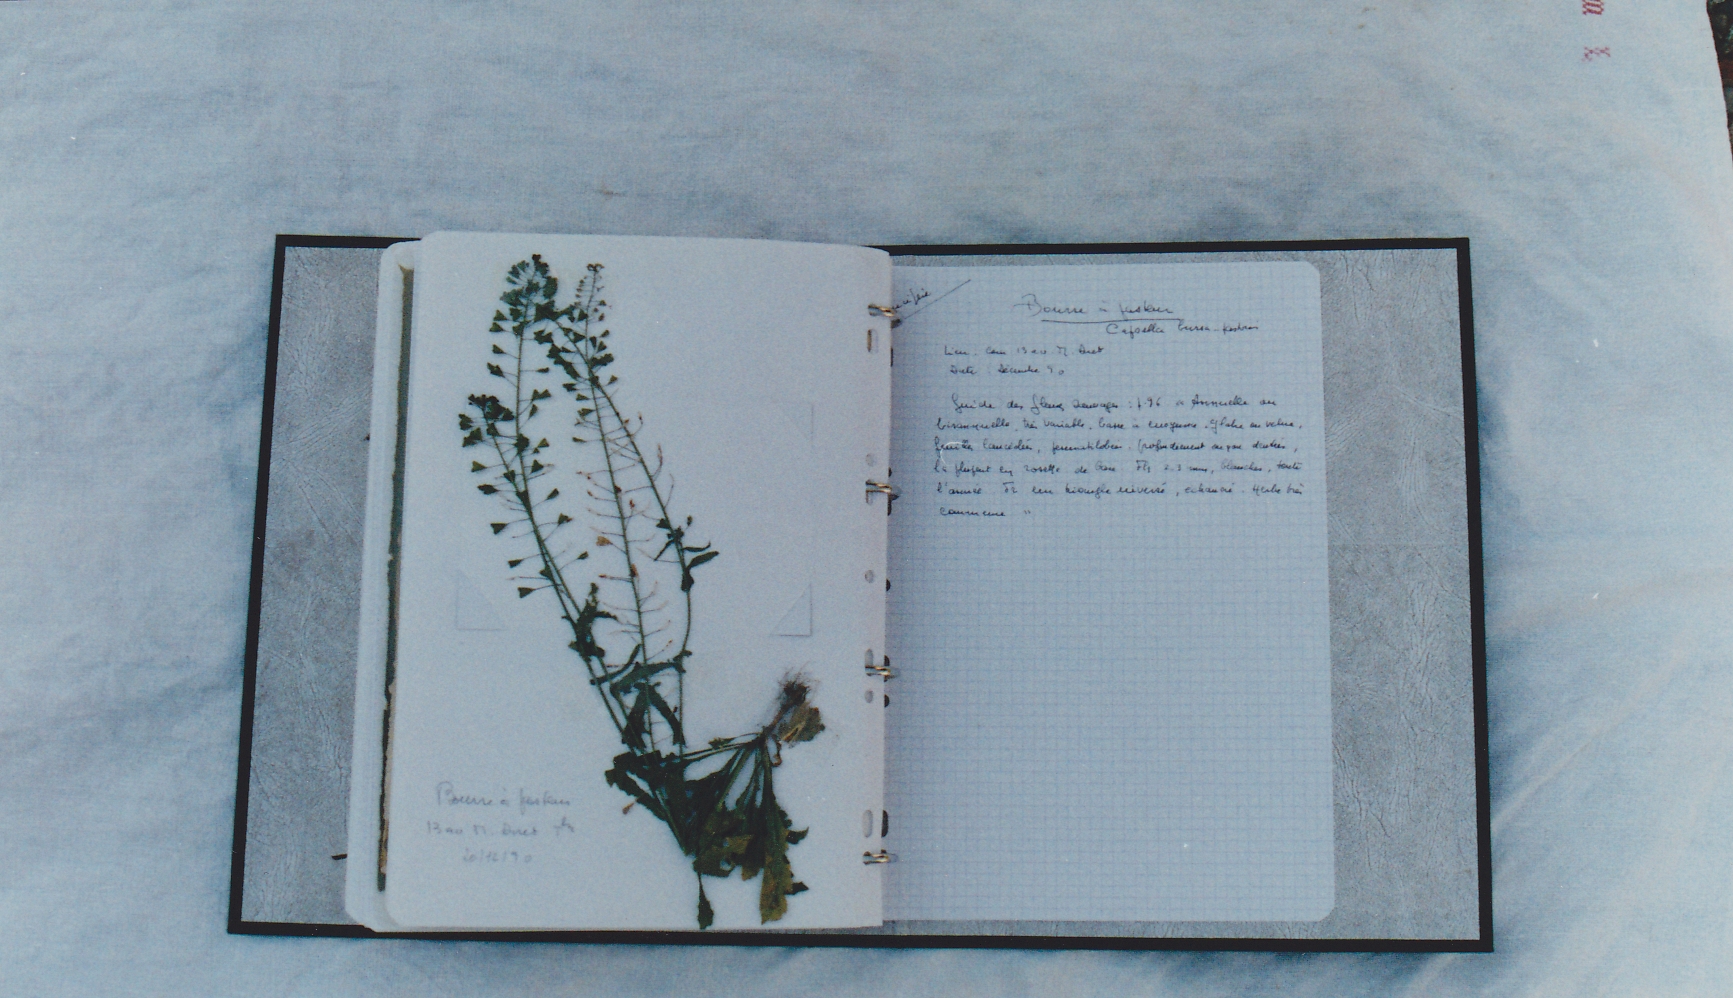 Bourse à pasteur
13 av M.
20/12/90
Bourse à pasteur
Capsella bursa-pastoris
Lieu. 13 av. M.
Date : Décembre 90
Guide des fleurs sauvages : p.96 " Annuelle ou
bisannuelle, très variable, basse à moyenne. Glabre ou velue,
feuilles lancéolées, pennatilobées. profondément ou pas dentées,
la plupart en rosette de base. Fls 2.3 mm, blanches, toute
l'année. Fr en triangle inversé, échancré. Herbe très
commune "
m
X